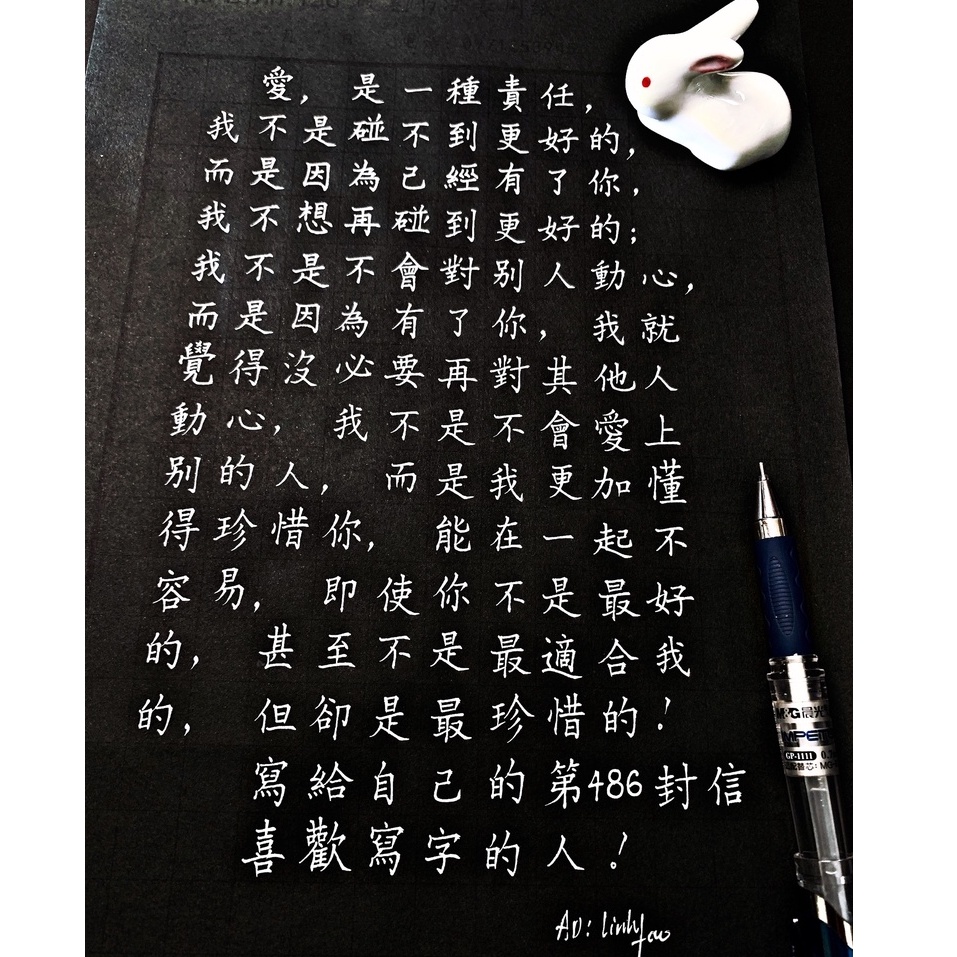 愛，是一種責任，
我不是碰不到更好的，
而是因為已經有了你，
我不想再碰到更好的；
我不是不會對別人動心，
而是因為有了你，我就
覺得沒必要再對其他人
動心，我不是不會愛上
別的人，而是我更加懂
得珍惜你，能在一起不
容易，即使你不是最好
的，甚至不是最適合我
的，但卻是最珍惜的！
寫給自己的第486封信
喜歡寫字的人！
AD: linh
M&G 晨光
GP-1111